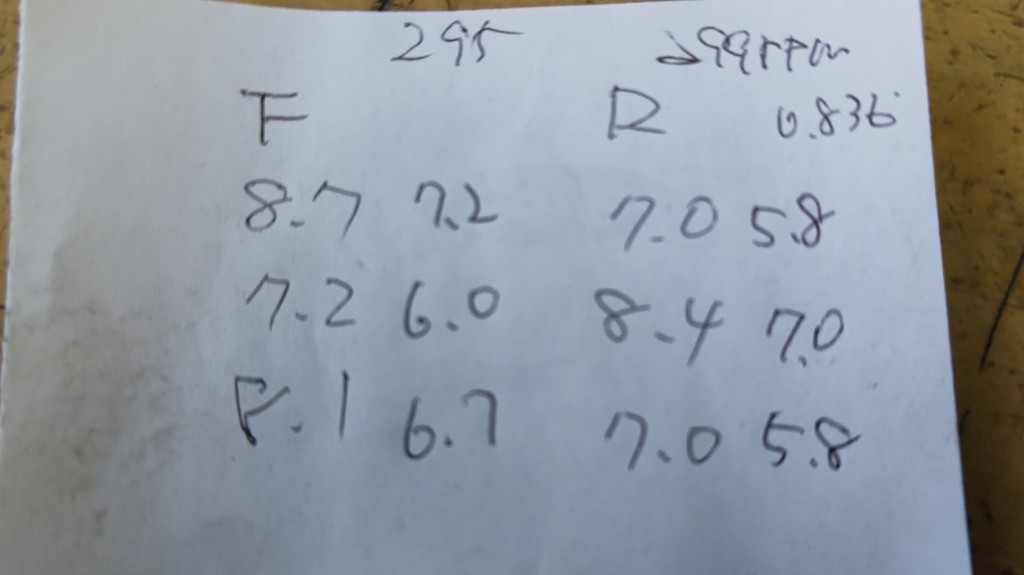 295 299rpm
F R 0.836
8.7 7.2 7.0 5.8
7.2 6.0 8.4 7.0
8.1 6.7 7.0 5.8